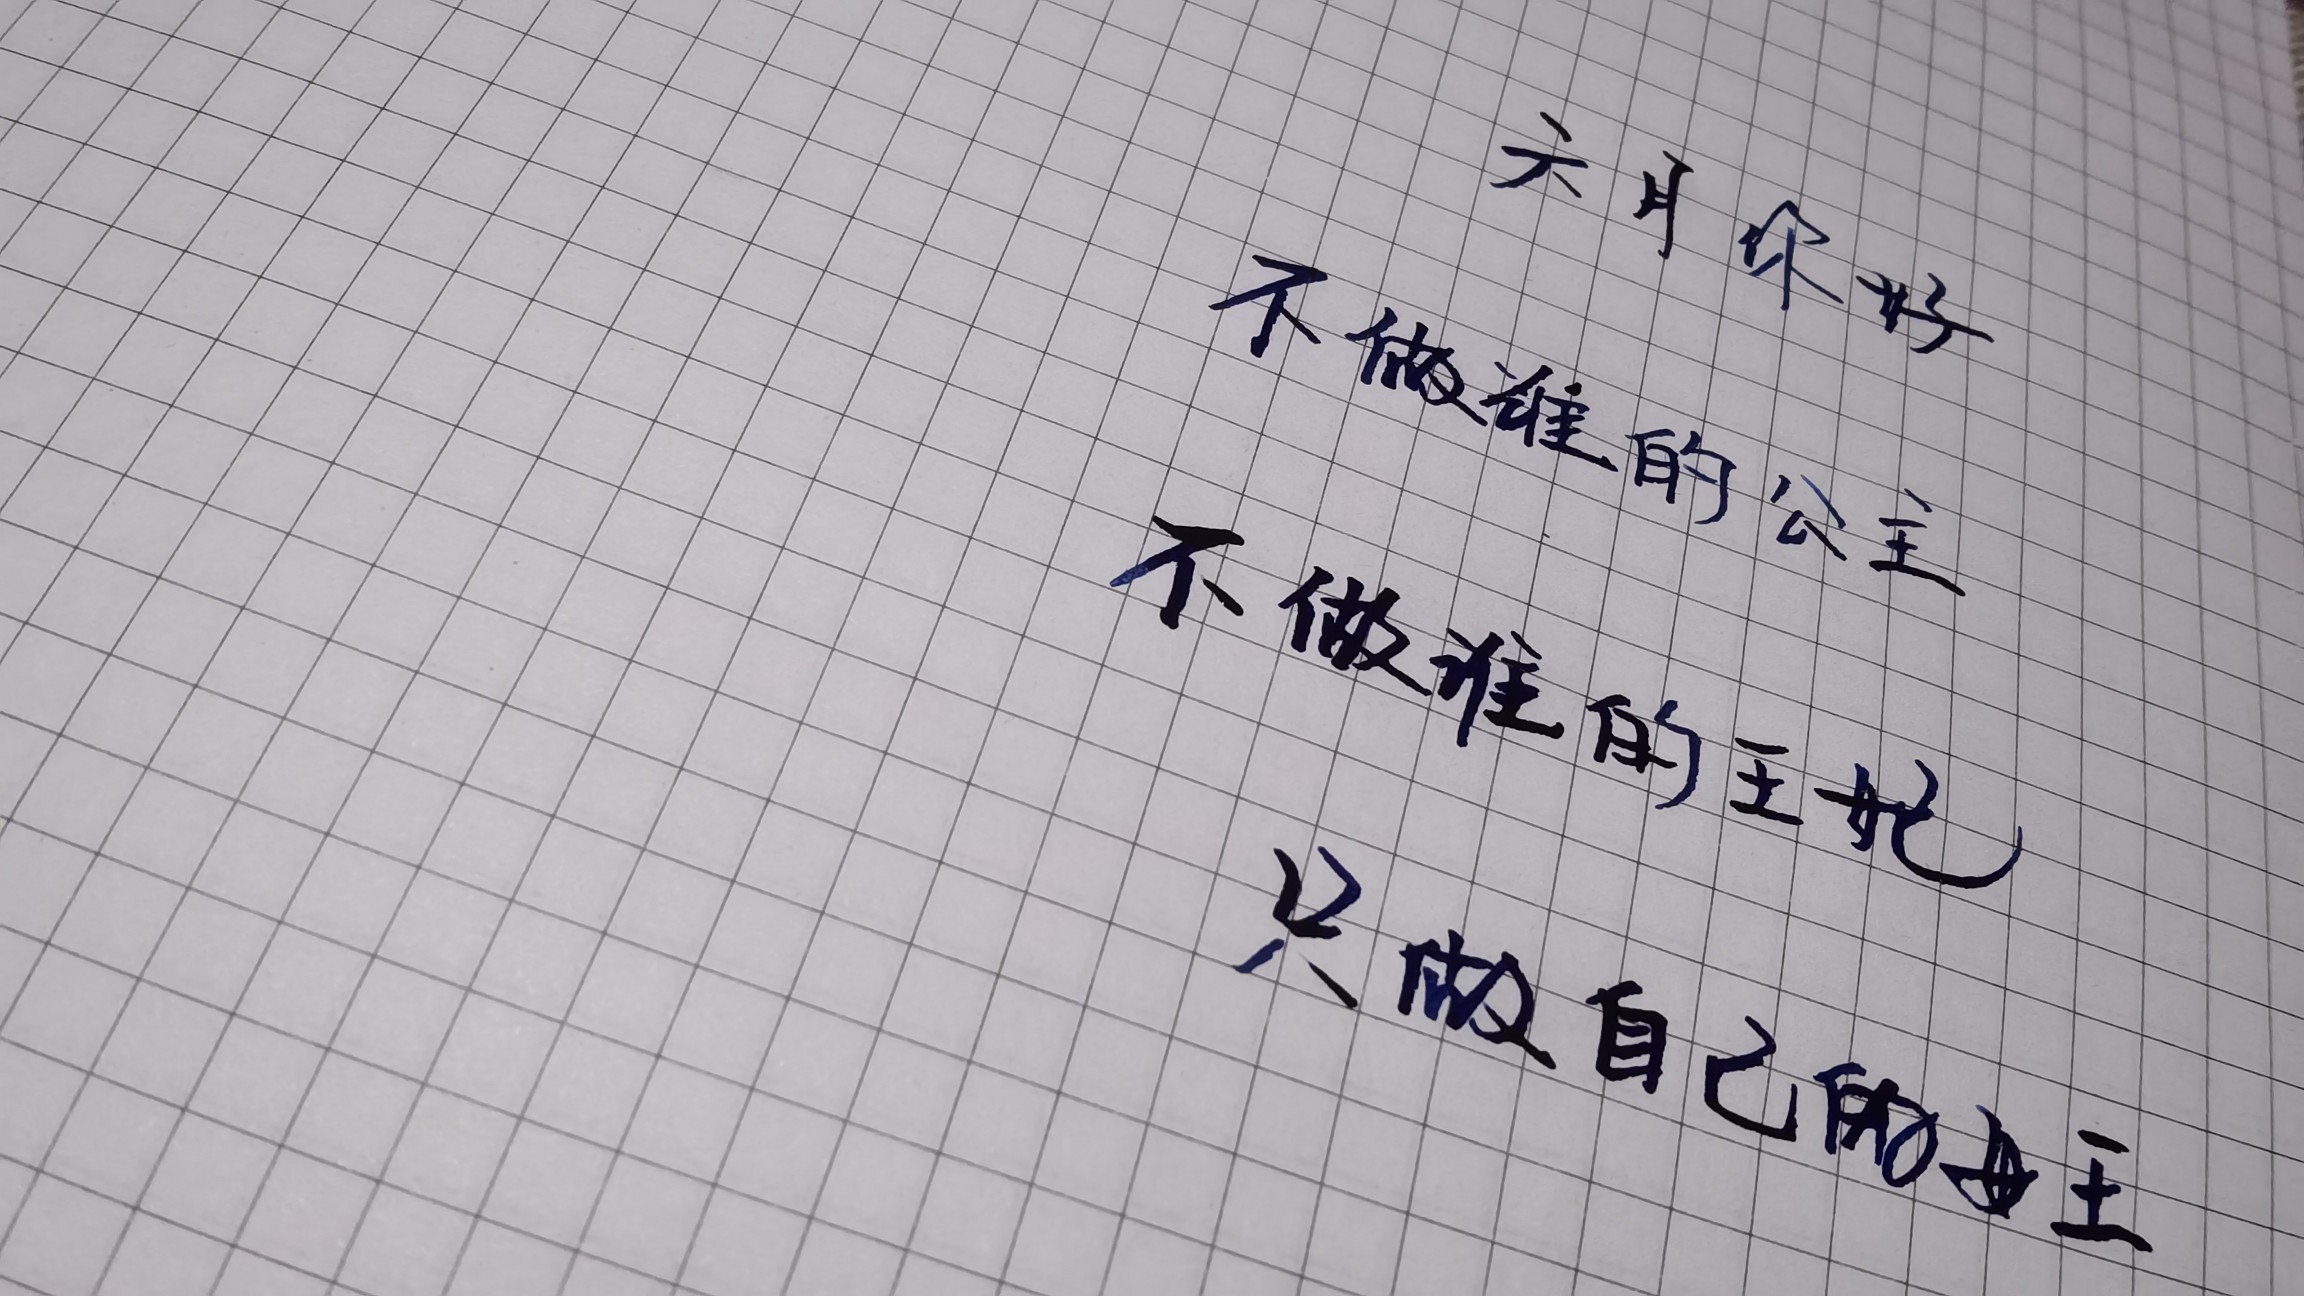 六月你好
不做谁的公主
不做谁的王妃
只做自己的女王